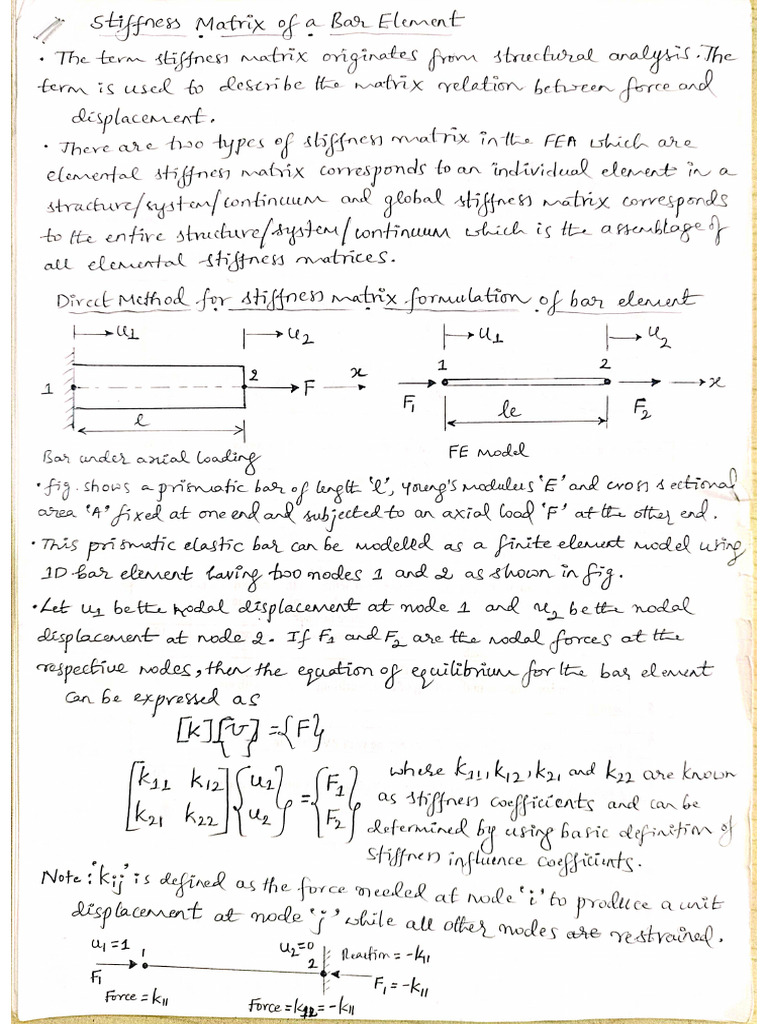 Stiffness Matrix of a Bar Element
• The term stiffness matrix originates from structural analysis. The
term is used to describe the matrix relation between force and
displacement.
• There are two types of stiffness matrix in the FEA which are
elemental stiffness matrix corresponds to an individual element in a
structure/system/continuum and global stiffness matrix corresponds
to the entire structure/system/continuum which is the assemblage of
all elemental stiffness matrices.
Direct Method for stiffness matrix formulation of bar element
u1 u2 u1 u2
1 2 F x F1 1 2 F2 x
l le
Bar under axial loading FE Model
• fig. shows a prismatic bar of length 'l', Young's modulus 'E' and cross sectional
area 'A' fixed at one end and subjected to an axial load 'F' at the other end.
• This prismatic elastic bar can be modelled as a finite element model using
1D bar element having two nodes 1 and 2 as shown in fig.
• Let u1 be the nodal displacement at node 1 and u2 be the nodal
displacement at node 2. If F1 and F2 are the nodal forces at the
respective nodes, then the equation of equilibrium for the bar element
can be expressed as
[k]{U} = {F}
[k11 k12] {u2} = {F1} where k11, k12, k21 and k22 are known
[k21 k22] {u2} {F2} as stiffness coefficients and can be
determined by using basic definition of
stiffness influence coefficients.
Note: 'kij' is defined as the force needed at node 'i' to produce a unit
displacement at node 'j' while all other nodes are restrained.
u1=1 1 u2=0 2 Reaction = -k11
F1 F1 = -k11
Force = k11 Force = k12 = -k11